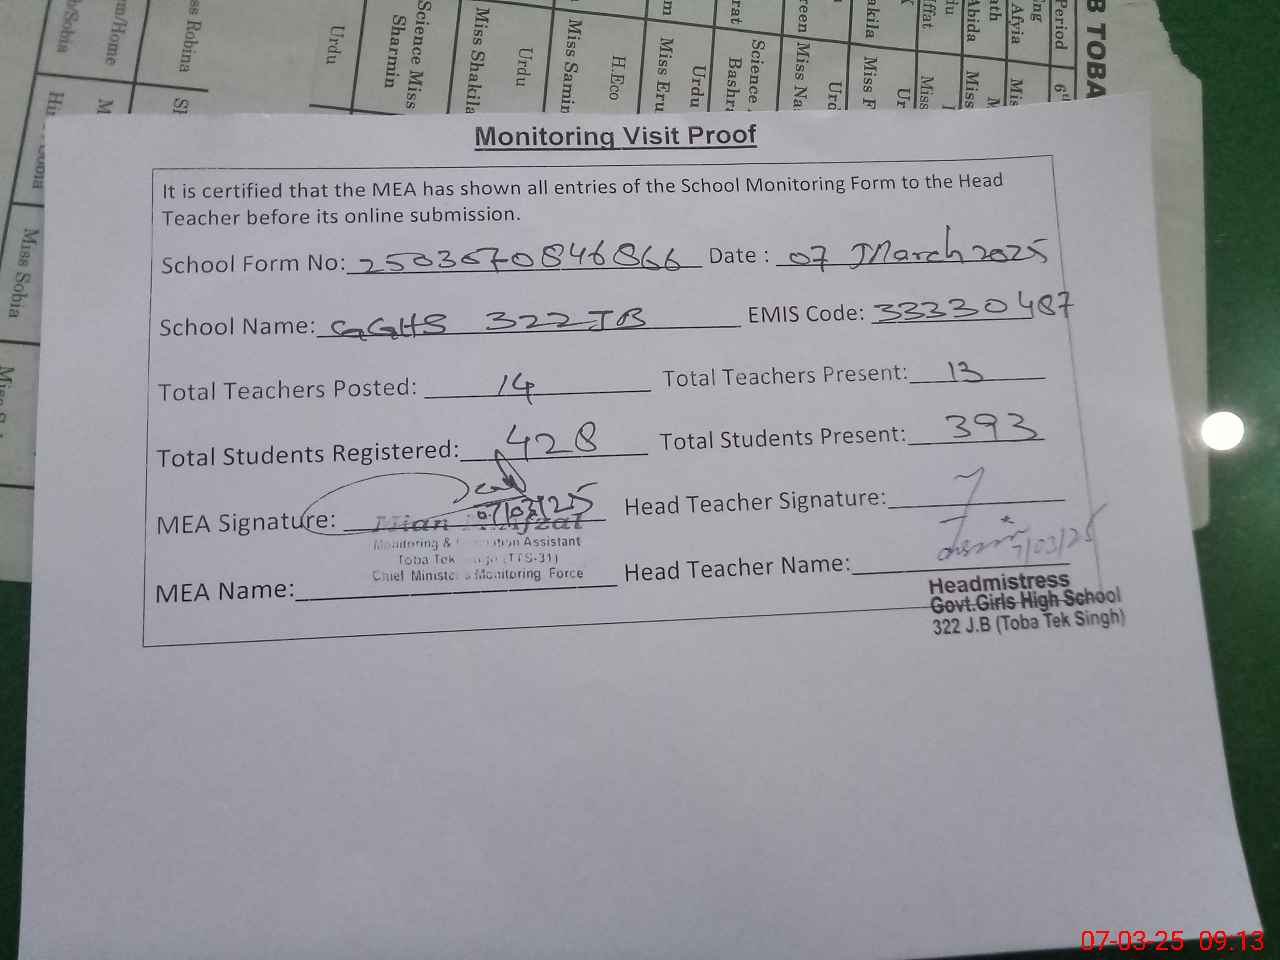 B TOBA
Period 6th
Miss Robina
Urdu
Science Miss
Sharmin
Miss Shakila
Urdu
Miss Samin
H.Eco
Urdu
Science
Miss Sobia
Monitoring Visit Proof
It is certified that the MEA has shown all entries of the School Monitoring Form to the Head
Teacher before its online submission.
School Form No: 2503670846866 Date : 07 March 2025
School Name: GGHS 322 JB EMIS Code: 33330487
Total Teachers Posted: 14 Total Teachers Present: 13
Total Students Registered: 428 Total Students Present: 393
MEA Signature: 07/03/25 Head Teacher Signature:
Mian
Monitoring & Assistant
Toba Tek
Chief Minister's Monitoring Force
MEA Name: Head Teacher Name: 7/03/25
Headmistress
Govt.Girls High School
322 J.B (Toba Tek Singh)
07-03-25 09:13